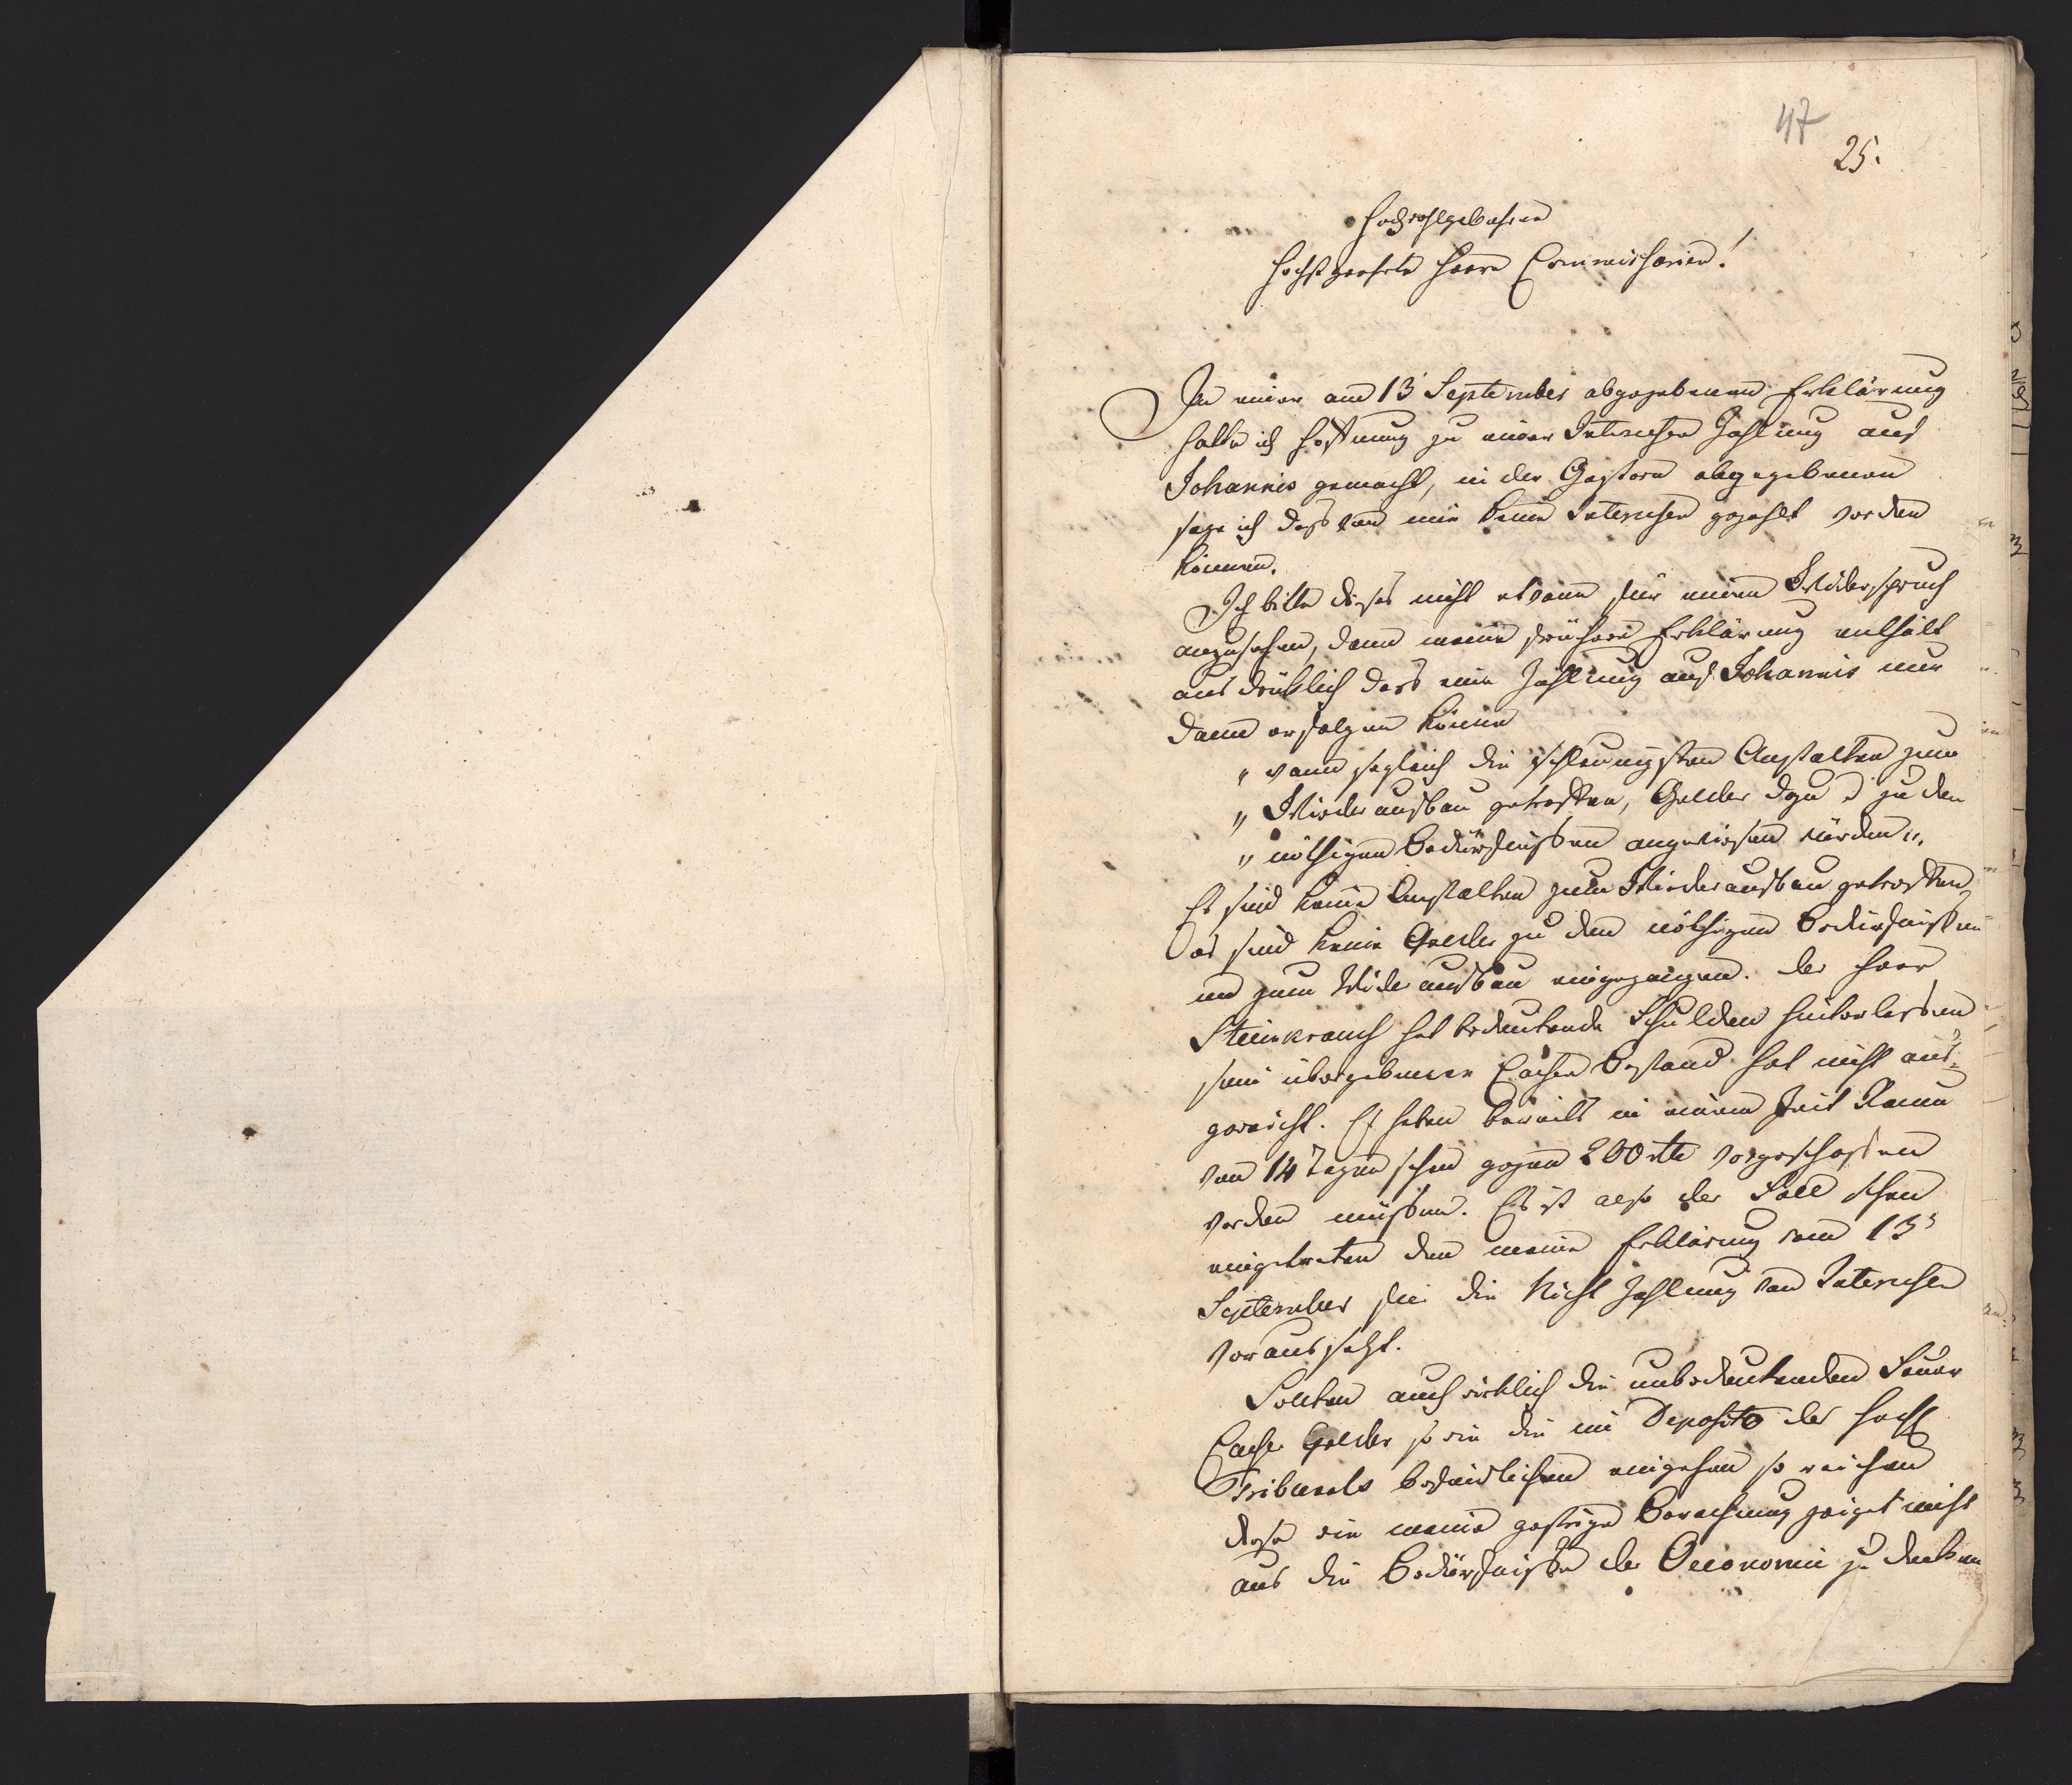 47
25.
Hochwohlgebohrne
Höchstgeehrte Herrn Commissarien!
In einer am 13 September abgegebenen Erklärung
hatte ich Hoffnung zu einer Interessen Zahlung auf
Johannis gemacht, in der Gestern abgegebenen
sage ich daß von mir keine Interessen gezahlt werden
können.
Ich bitte dieses nicht etwann für einen Widerspruch
anzusehen, denn meine frühere Erklärung enthält
ausdrüklich dass eine Zahlung auf Johannis nur
dann erfolgen könne
„ wann sogleich die schleunigsten Anstalten zum
„ Wiederaufbau getroffen, Gelder dazu u zu den
„ nöthigen Bedürfnissen angewiesen würden „.
Es sind keine Anstalten zum Wiederaufbau getroffen,
es sind keine Gelder zu den nöthigen Bedürfnissen
und zum Wideraufbau eingegangen. Der Herr
Steinkrauch hat bedeutende Schulden hinterlassen
sein übergebener Cassen Bestand hat nicht aus-
gereicht. Es haben bereits in einem Zeit Raum
von 14 Tagen schon gegen 200 rtl vorgeschossen
werden müssen. Es ist also der Fall schon
eingetreten den meine Erklärung vom 13
September für die Nicht Zahlung von Interessen
voraussetzt.
Sollten auch wirklich die unbedeutenden Feuer
Casse Gelder so wie die im Deposito des
Tribunals befindlichen eingehen so reichen
diese wie meine gestrige Berechnung zeiget nicht
aus die Bedürfnisse der Oeconomie zu decken